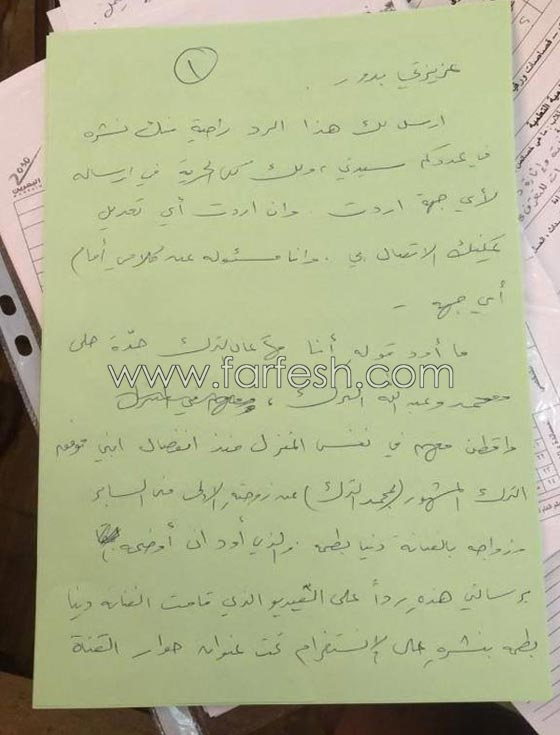 ١
عزيزتي بدور .
ارسل لك هذا الرد راجية منك نشره
في عددكم سيدتي ، ولك كل الحرية في ارساله
لأي جهة اردت . وان اردت أي تعديل
يمكنك الاتصال بي . وانا مسئولة عن كلامي أمام
أي جهة -
ما أود قوله أنا الترك جدّة حلى
محمد وعبد الله الترك ،
واقطن معهم في نفس المنزل منذ انفصال ابني
الترك المشهور (بمحمد الترك) عن زوجته الاولى منى السابر
وزواجه بالفنانة دنيا بطمه والذي أود ان أوضحه
برسالتي هذه رداً على الفيديو الذي قامت الفنانه دنيا
بطمه بنشره على الإنستغرام تحت عنوان حوار القناة
www.farfesh.com